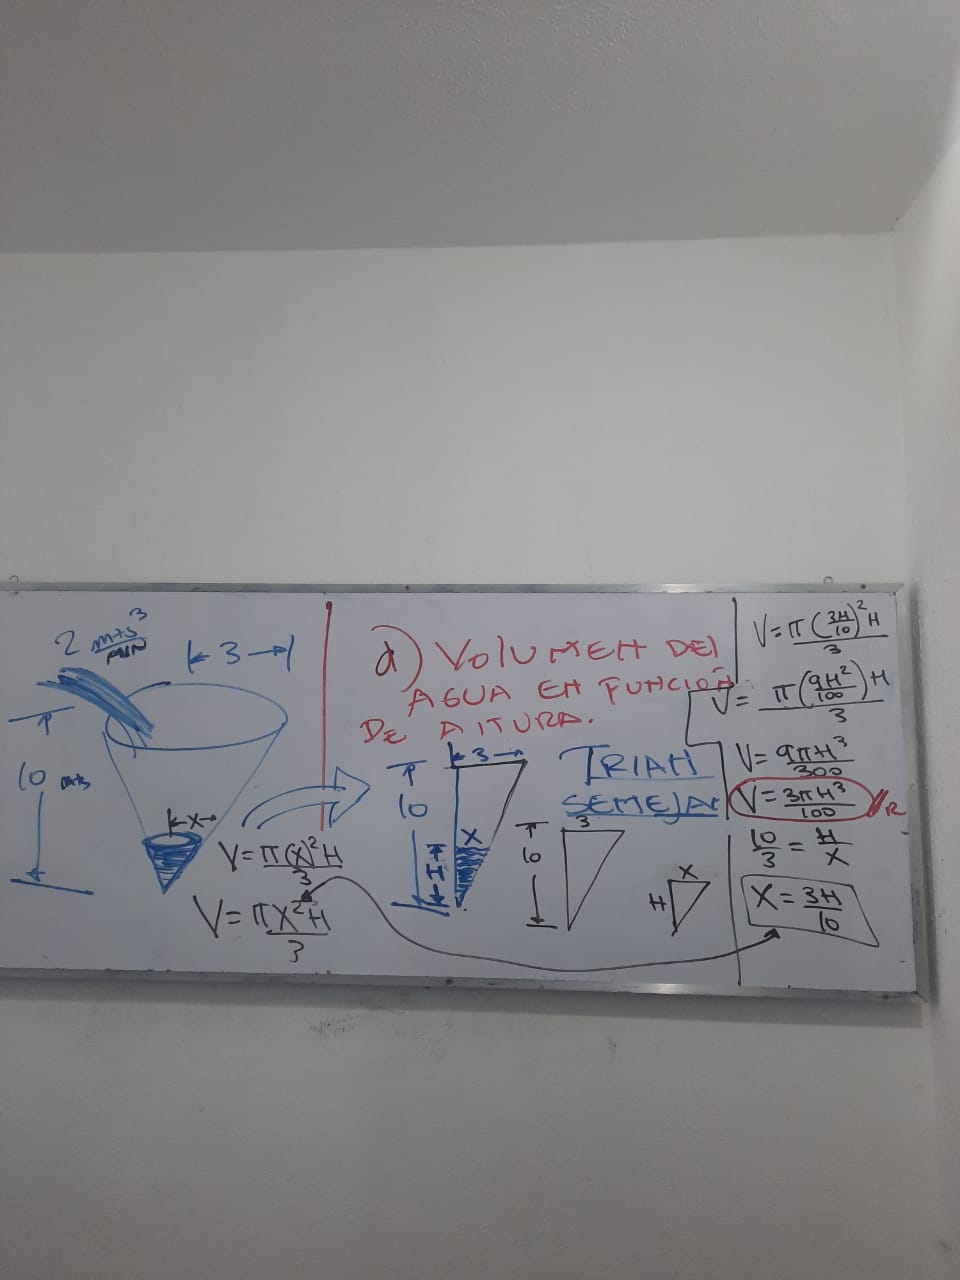 2 mts³/MIN
3
10 mts
X
V= π(X)²H/3
V= πX²H/3
a) VOLUMEN DEL
AGUA EN FUNCIÓN
DE AlTURA.
3
10
X
H
TRIAN
SEMEJAN
3
10
X
H
V= π(3H/10)²H/3
V= π(9H²/100)H/3
V= 9πH³/300
V= 3πH³/100 //R
10/3 = H/X
X= 3H/10